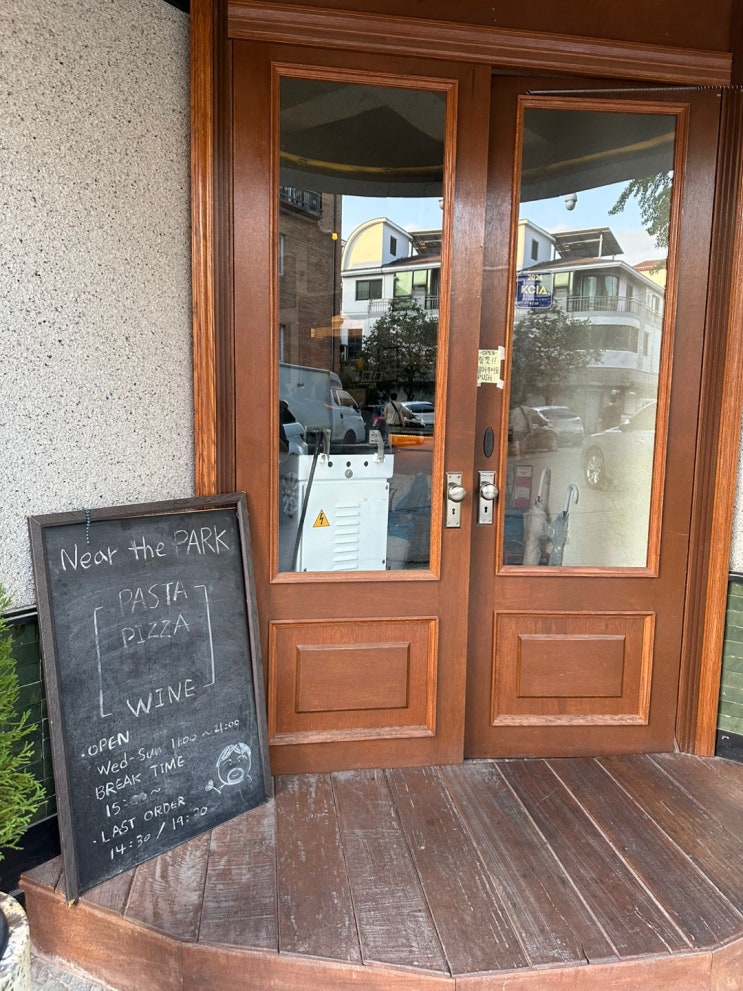 Near the PARK
PASTA
PIZZA
WINE
·OPEN
Wed-Sun 11:00 ~ 21:00
BREAK TIME
15: ~
·LAST ORDER
14:30 / 19:
2024
KCIA
-OPEN-
PUSH